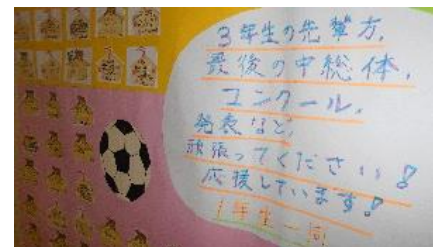 3年生の先輩方、
最後の中総体、
コンクール、
発表など、
頑張ってください!
応援しています!
1年生一同